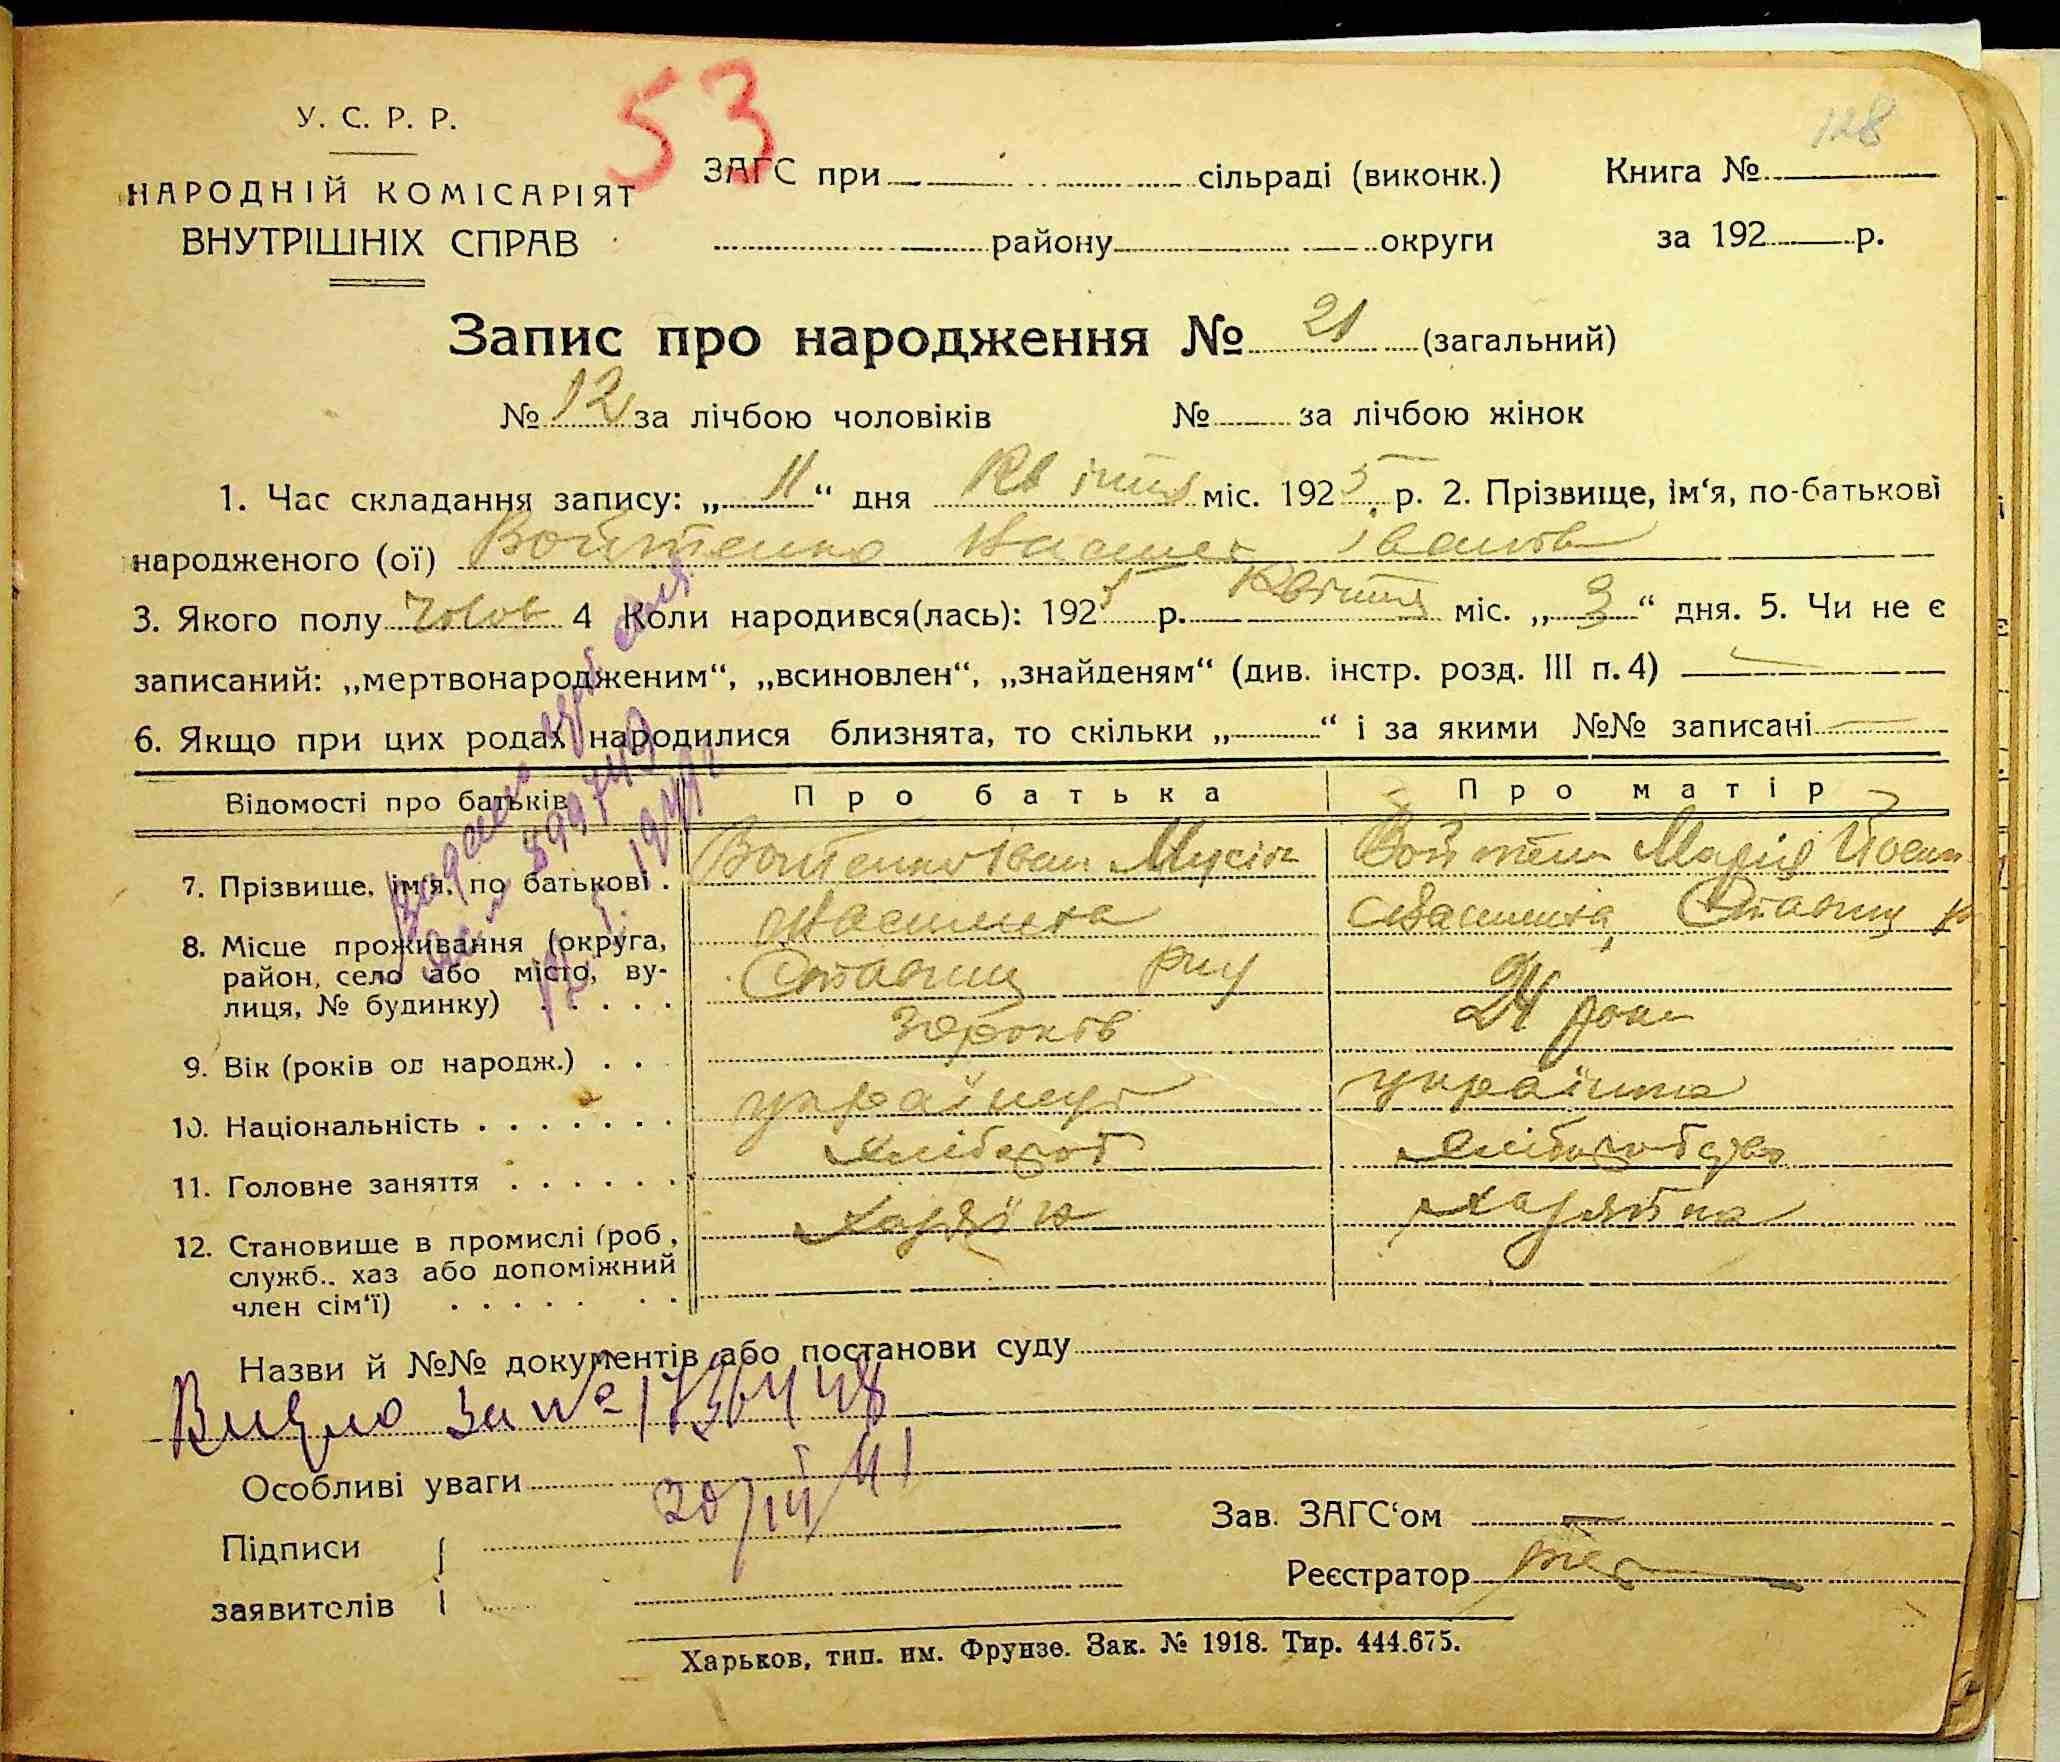 53
128
У. С. Р. Р.
НАРОДНІЙ КОМІСАРІЯТ
ВНУТРІШНІХ СПРАВ
ЗАГС при сільраді (виконк.)
Книга №
району округи
за 192 р.
Запис про народження № 21 (загальний)
№ 12 за лічбою чоловіків № за лічбою жінок
1. Час складання запису: „11“ дня Квітня міс. 1925 р. 2. Прізвище, ім‘я, по-батькові
народженого (ої) Войтенко Іванов
3. Якого полу Чолов 4 Коли народився(лась): 1925 р. Квітня міс. „3“ дня. 5. Чи не є
записаний: „мертвонародженим“, „всиновлен“, „знайденям“ (див. інстр. розд. III п. 4)
6. Якщо при цих родах народилися близнята, то скільки „ “ і за якими №№ записані
Відомості про батьків
Про батька
Про матір
7. Прізвище, ім‘я, по батькові .
Войтенко Іван Мусієв
Войтенко Марія
8. Місце проживання (округа,
район, село або місто, ву-
лиця, № будинку) . . . . .
Ставищ р-ну
Ставищ
9. Вік (років од народж.) . . .
років
24 роки
10. Національність . . . . . . .
українец
українка
11. Головне заняття . . . . . .
хлібороб
хліборобство
12. Становище в промислі (роб,
служб., хаз або допоміжний
член сім‘ї) . . . . . . .
Хазяїн
Хазяйка
Назви й №№ документів або постанови суду
Видно за №
Особливі уваги
20/III 41
Підписи
заявителів
Зав. ЗАГС‘ом
Реєстратор
Харьков, тип. им. Фрунзе. Зак. № 1918. Тир. 444.675.